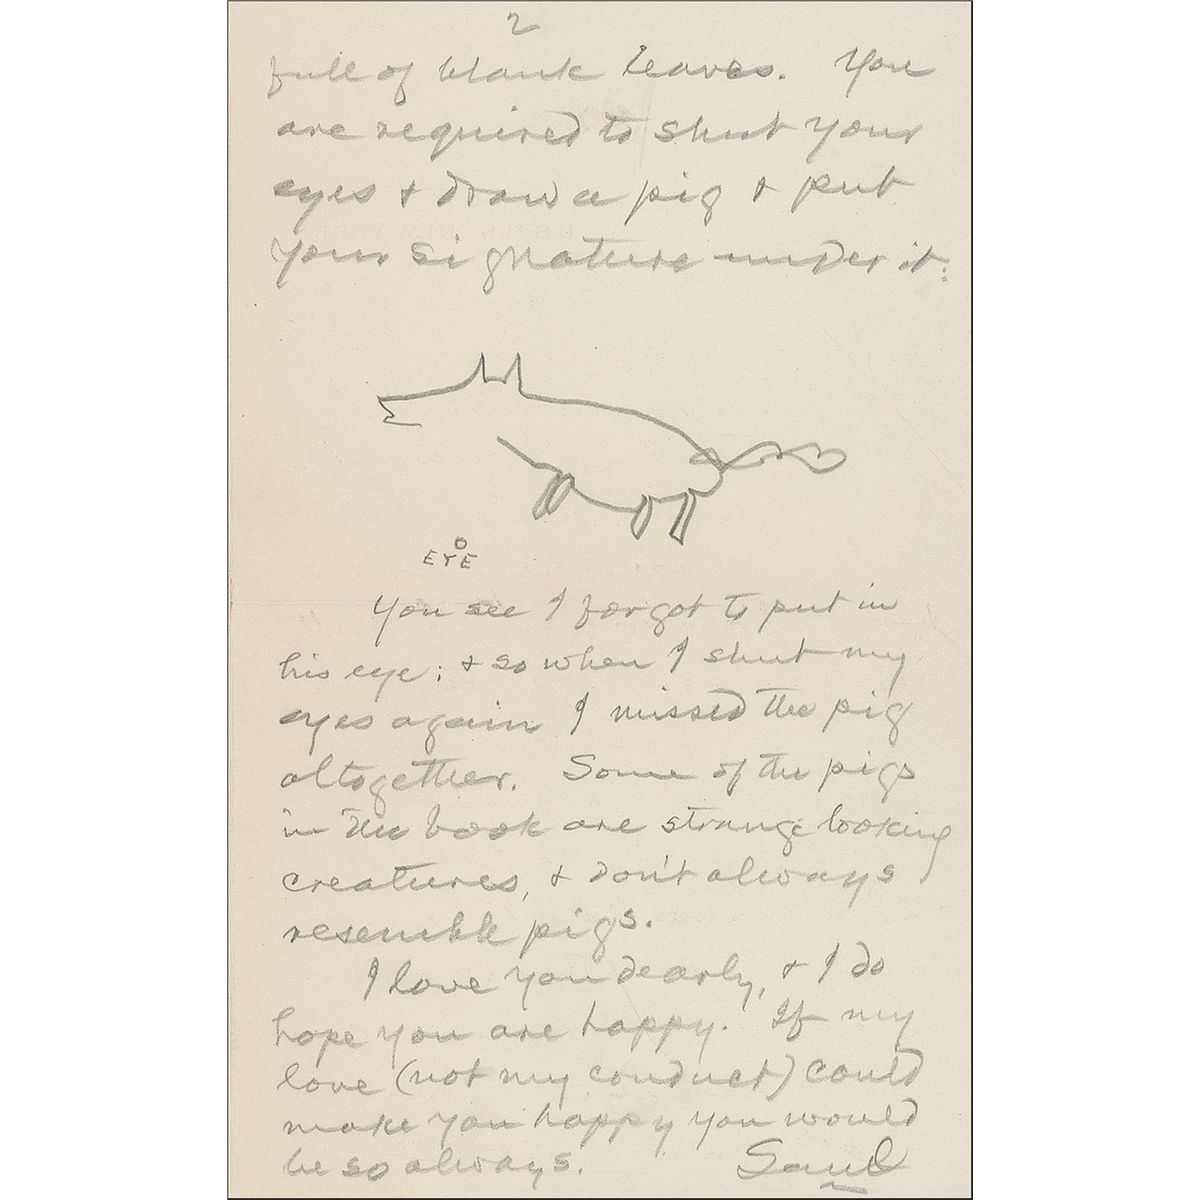 2
full of blank leaves. You
are required to shut your
eyes & draw a pig & put
your signature under it:
EYE
You see I forgot to put in
his eye; & so when I shut my
eyes again I missed the pig
altogether. Some of the pigs
in the book are strange looking
creatures, & don't always
resemble pigs.
I love you dearly, & I do
hope you are happy. If my
love (not my conduct) could
make you happy you would
be so always. Saml